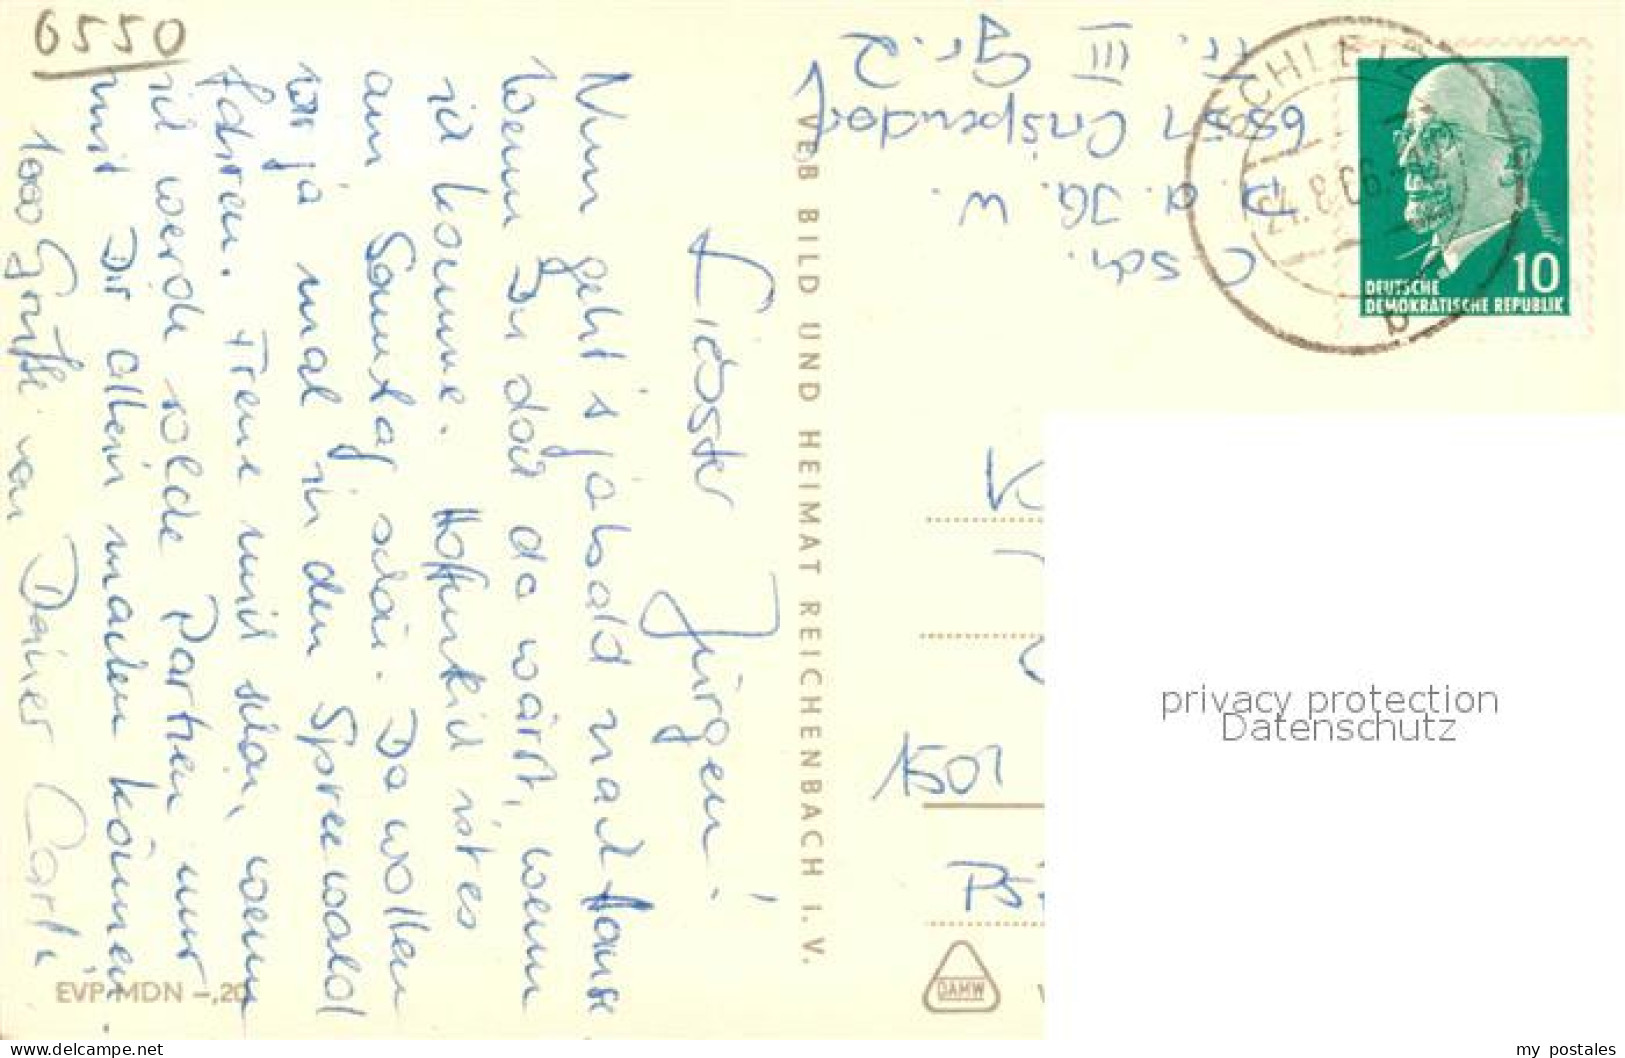 6550
Liebster Jürgen!
Nun geht's ja bald nach Hause
Wenn Du doch da wärst, wenn
ich komme. Hoffentlich ist es
am Samstag schön. Da wollen
wir ja mal in den Spreewald
fahren. Freue mich schon, wenn
ich werde solche Partien nur
mit Dir allein machen können.
1000 Grüße von Deiner Carli
EVP MDN -,20
VEB BILD UND HEIMAT REICHENBACH I. V.
C sch.
z. a. IH. W.
6551 Crispendorf
Tr. III Gr. 2
SCHLEIZ
b
10
DEUTSCHE
DEMOKRATISCHE REPUBLIK
K
1501
DAMW
V
privacy protection
Datenschutz
www.delcampe.net
my postales